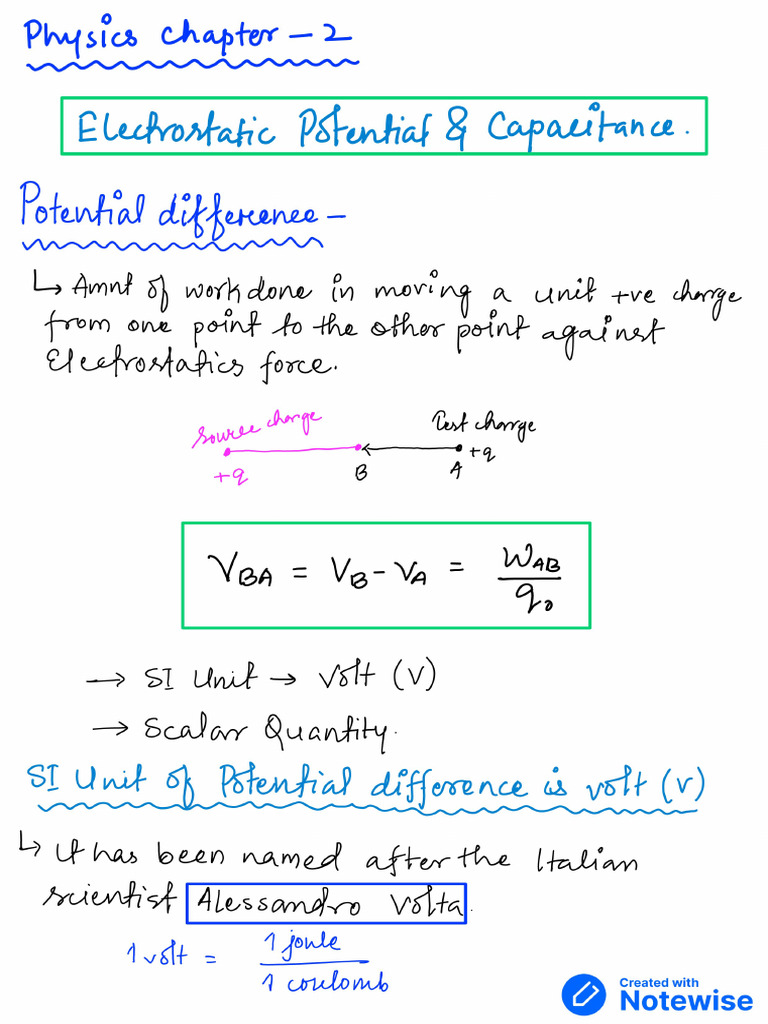 Physics chapter - 2
Electrostatic Potential & Capacitance.
Potential difference -
↳ Amnt of work done in moving a unit +ve charge
from one point to the other point against
Electrostatics force.
source charge
Test charge
+q B A +q
V_BA = V_B - V_A = W_AB / q₀
→ SI Unit → Volt (V)
→ Scalar Quantity.
SI Unit of Potential difference is volt (v)
↳ It has been named after the Italian
scientist Alessandro Volta.
1 volt = 1 joule / 1 coulomb
Created with
Notewise